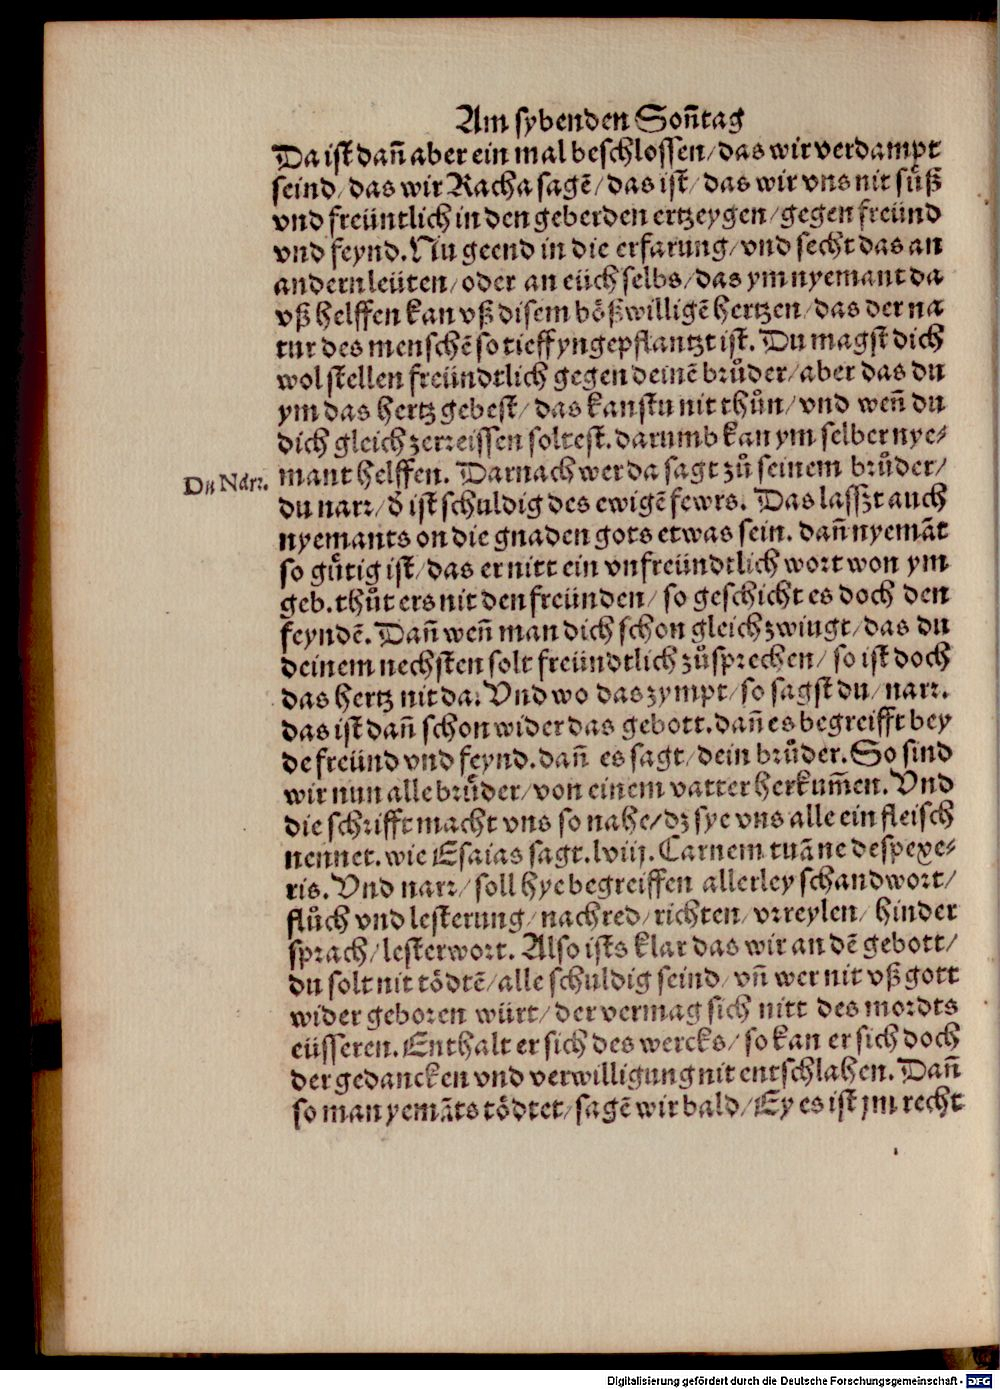 Am sybenden Soñtag
Da ist dañ aber ein mal beschlossen/ das wir verdampt
seind/ das wir Racha sagẽ/ das ist/ das wir vns nit süß
vnd freüntlich in den geberden ertzeygen/ gegen freünd
vnd feynd. Nu geend in die erfarung/ vnd secht das an
andern leüten/ oder an eüch selbs/ das ym nyemant da
vß helffen kan vß disem bößwilligẽ hertzen/ das der na
tur des menschẽ so tieff yngepflantzt ist. Du magst dich
wol stellen freündtlich gegen deinẽ brůder/ aber das du
ym das hertz gebest/ das kanstu nit thůn/ vnd weñ du
dich gleich zerreissen soltest. darumb kan ym selber nye⸗
Du Narr.
mant helffen. Darnach wer da sagt zů seinem brůder/
du narr/ d̕ ist schuldig des ewigẽ fewrs. Das lasszt auch
nyemants on die gnaden gots etwas sein. dañ nyemãt
so gůtig ist/ das er nitt ein vnfreündtlich wort won ym
geb. thůt ers nit den freünden/ so geschicht es doch den
feyndẽ. Dañ weñ man dich schon gleich zwingt/ das du
deinem nechsten solt freündtlich zůsprechen/ so ist doch
das hertz nit da. Vnd wo das zympt/ so sagst du/ narr.
das ist dañ schon wider das gebott. dañ es begreifft bey
de freünd vnd feynd. dañ es sagt/ dein brůder. So sind
wir nun alle brůder/ von einem vatter herkum̃en. Vnd
die schrifft macht vns so nahe/ dz sye vns alle ein fleisch
nennet. wie Esaias sagt. lviij. Carnem tuã ne despexe⸗
ris. Vnd narr/ soll hye begreiffen allerley schandwort/
flůch vnd lesterung/ nachred/ richten/ vrreylen/ hinder
sprach/ lesterwort. Also ists klar das wir an dẽ gebott/
du solt nit tödtẽ/ alle schuldig seind/ vñ wer nit vß gott
wider geboren würt/ der vermag sich nitt des mordts
eüsseren. Enthalt er sich des wercks/ so kan er sich doch
der gedancken vnd verwilligung nit entschlahen. Dañ
so man yemãts tödtet/ sagẽ wir bald/ Ey es ist jm recht
Digitalisierung gefördert durch die Deutsche Forschungsgemeinschaft - DFG